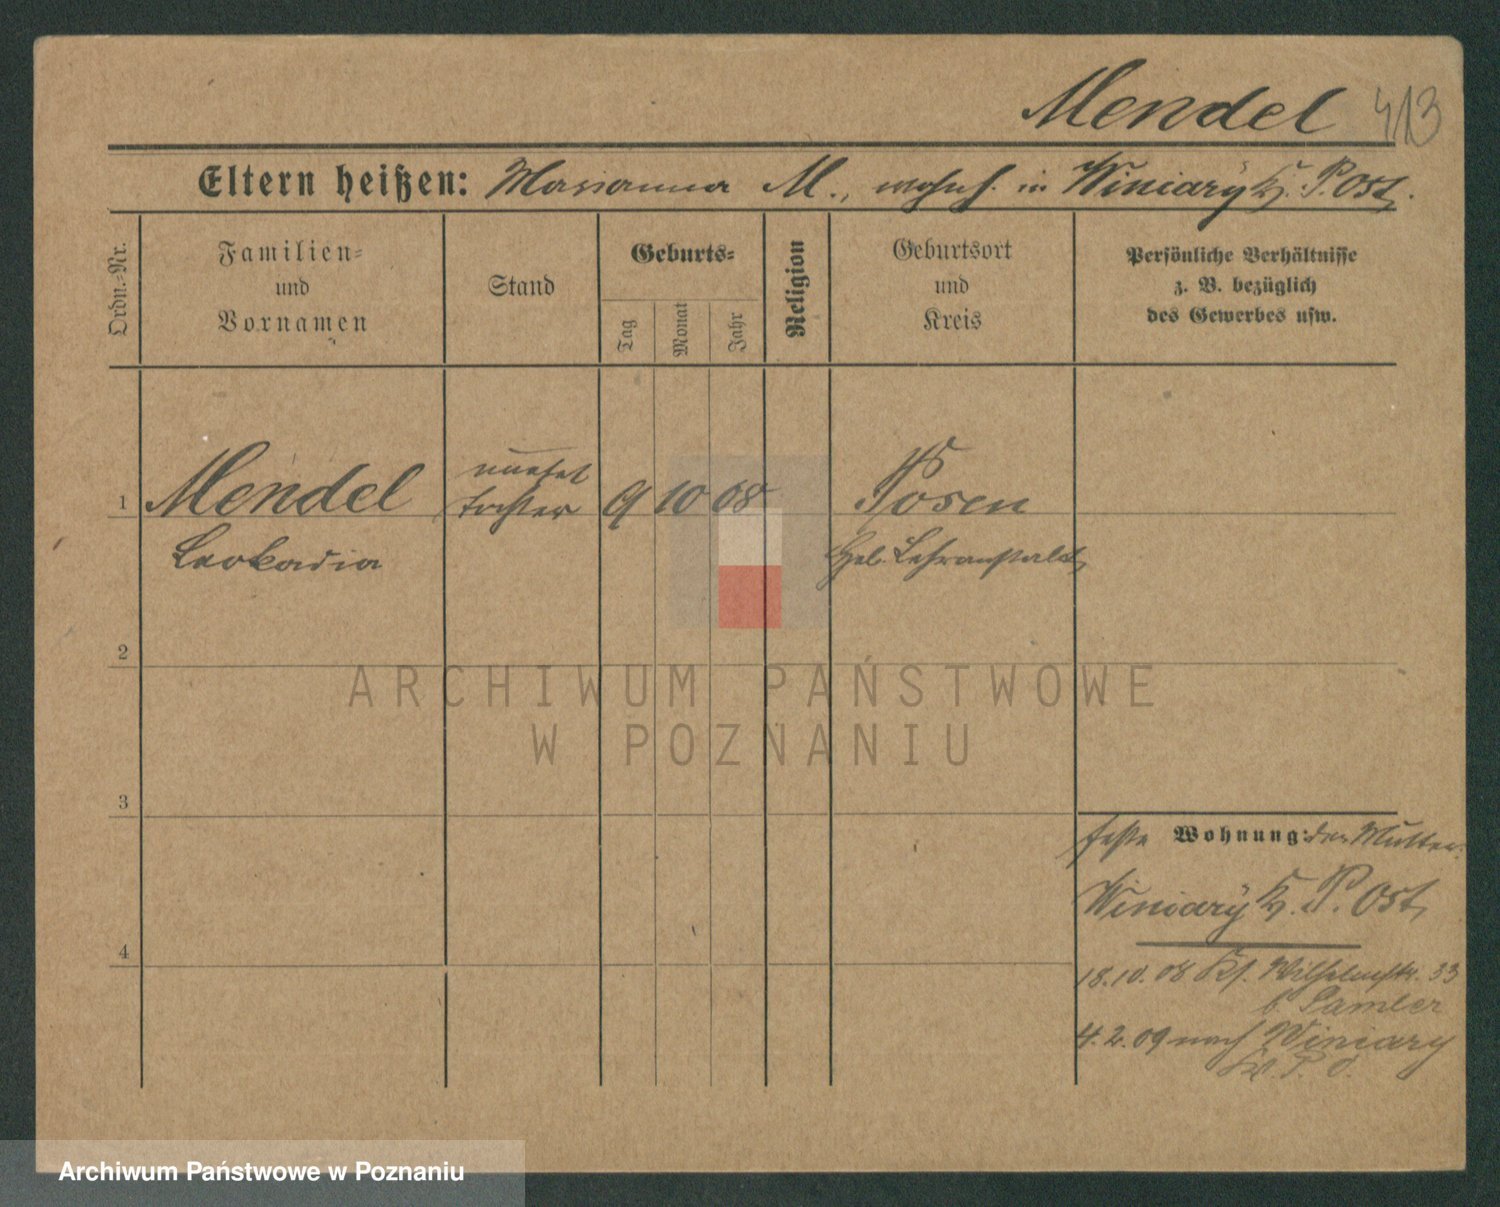 Mendel 413
Eltern heißen: Marianna M., wohnh. in Winiary Kr. P. Ost.
Ordn.-Nr.
Familien=
und
Vornamen
Stand
Geburts=
Tag
Monat
Jahr
Religion
Geburtsort
und
Kreis
Persönliche Verhältnisse
z. B. bezüglich
des Gewerbes usw.
1 Mendel
Leokadia
unehel
Tochter
9 10 08
Posen
Heb. Lehranstalt
2
3
4
feste Wohnung: der Mutter:
Winiary Kr. P. Ost,
18.10.08 Wilhelmstr. 33
b. Samler
4.2.09 nach Winiary
Kr. P. O.
ARCHIWUM PAŃSTWOWE
W POZNANIU
Archiwum Państwowe w Poznaniu